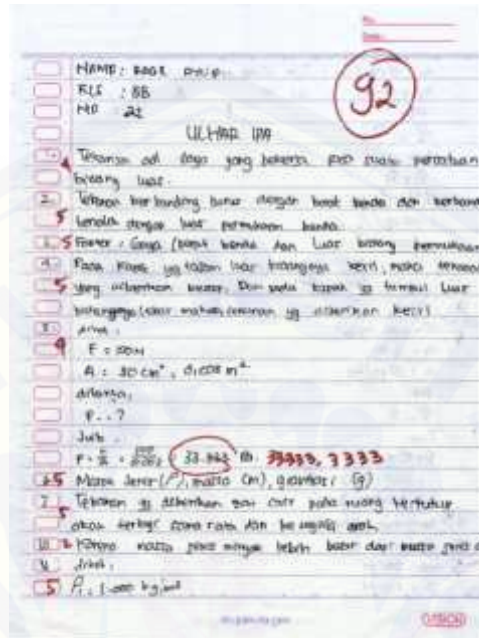 NAMA : BAGR
KLS : 8B
NO : 22
92
ULHAR IPA
1. Tekanan adl gaya yang bekerja pada suatu permukaan
bidang luar.
2. Tekanan berbanding lurus dengan berat benda dan berband
5 terbalik dengan luas permukaan benda.
3. 5 Faktor : Gaya (berat benda dan luas bidang permukaan
4. Pada kapak yg tajam luas bidangnya kecil, maka tekanan
5 yang diberikan besar, Dan pada kapak yg tumpul luas
bidangnya lebar maka tekanan yg diberikan kecil
5. diket :
4 F = 50N
A = 30 cm²
ditanya :
P..?
Jwb :
33.333 33333,3333
5 Massa Jenis (ρ), massa (m), gravitasi (g)
7. Tekanan yg diberikan zat cair pada ruang tertutup
5 akan terbagi sama rata dan ke segala arah.
10. Karena massa jenis minyak lebih besar dari massa jenis
diket :
5 P. = 1.000 kg/m³